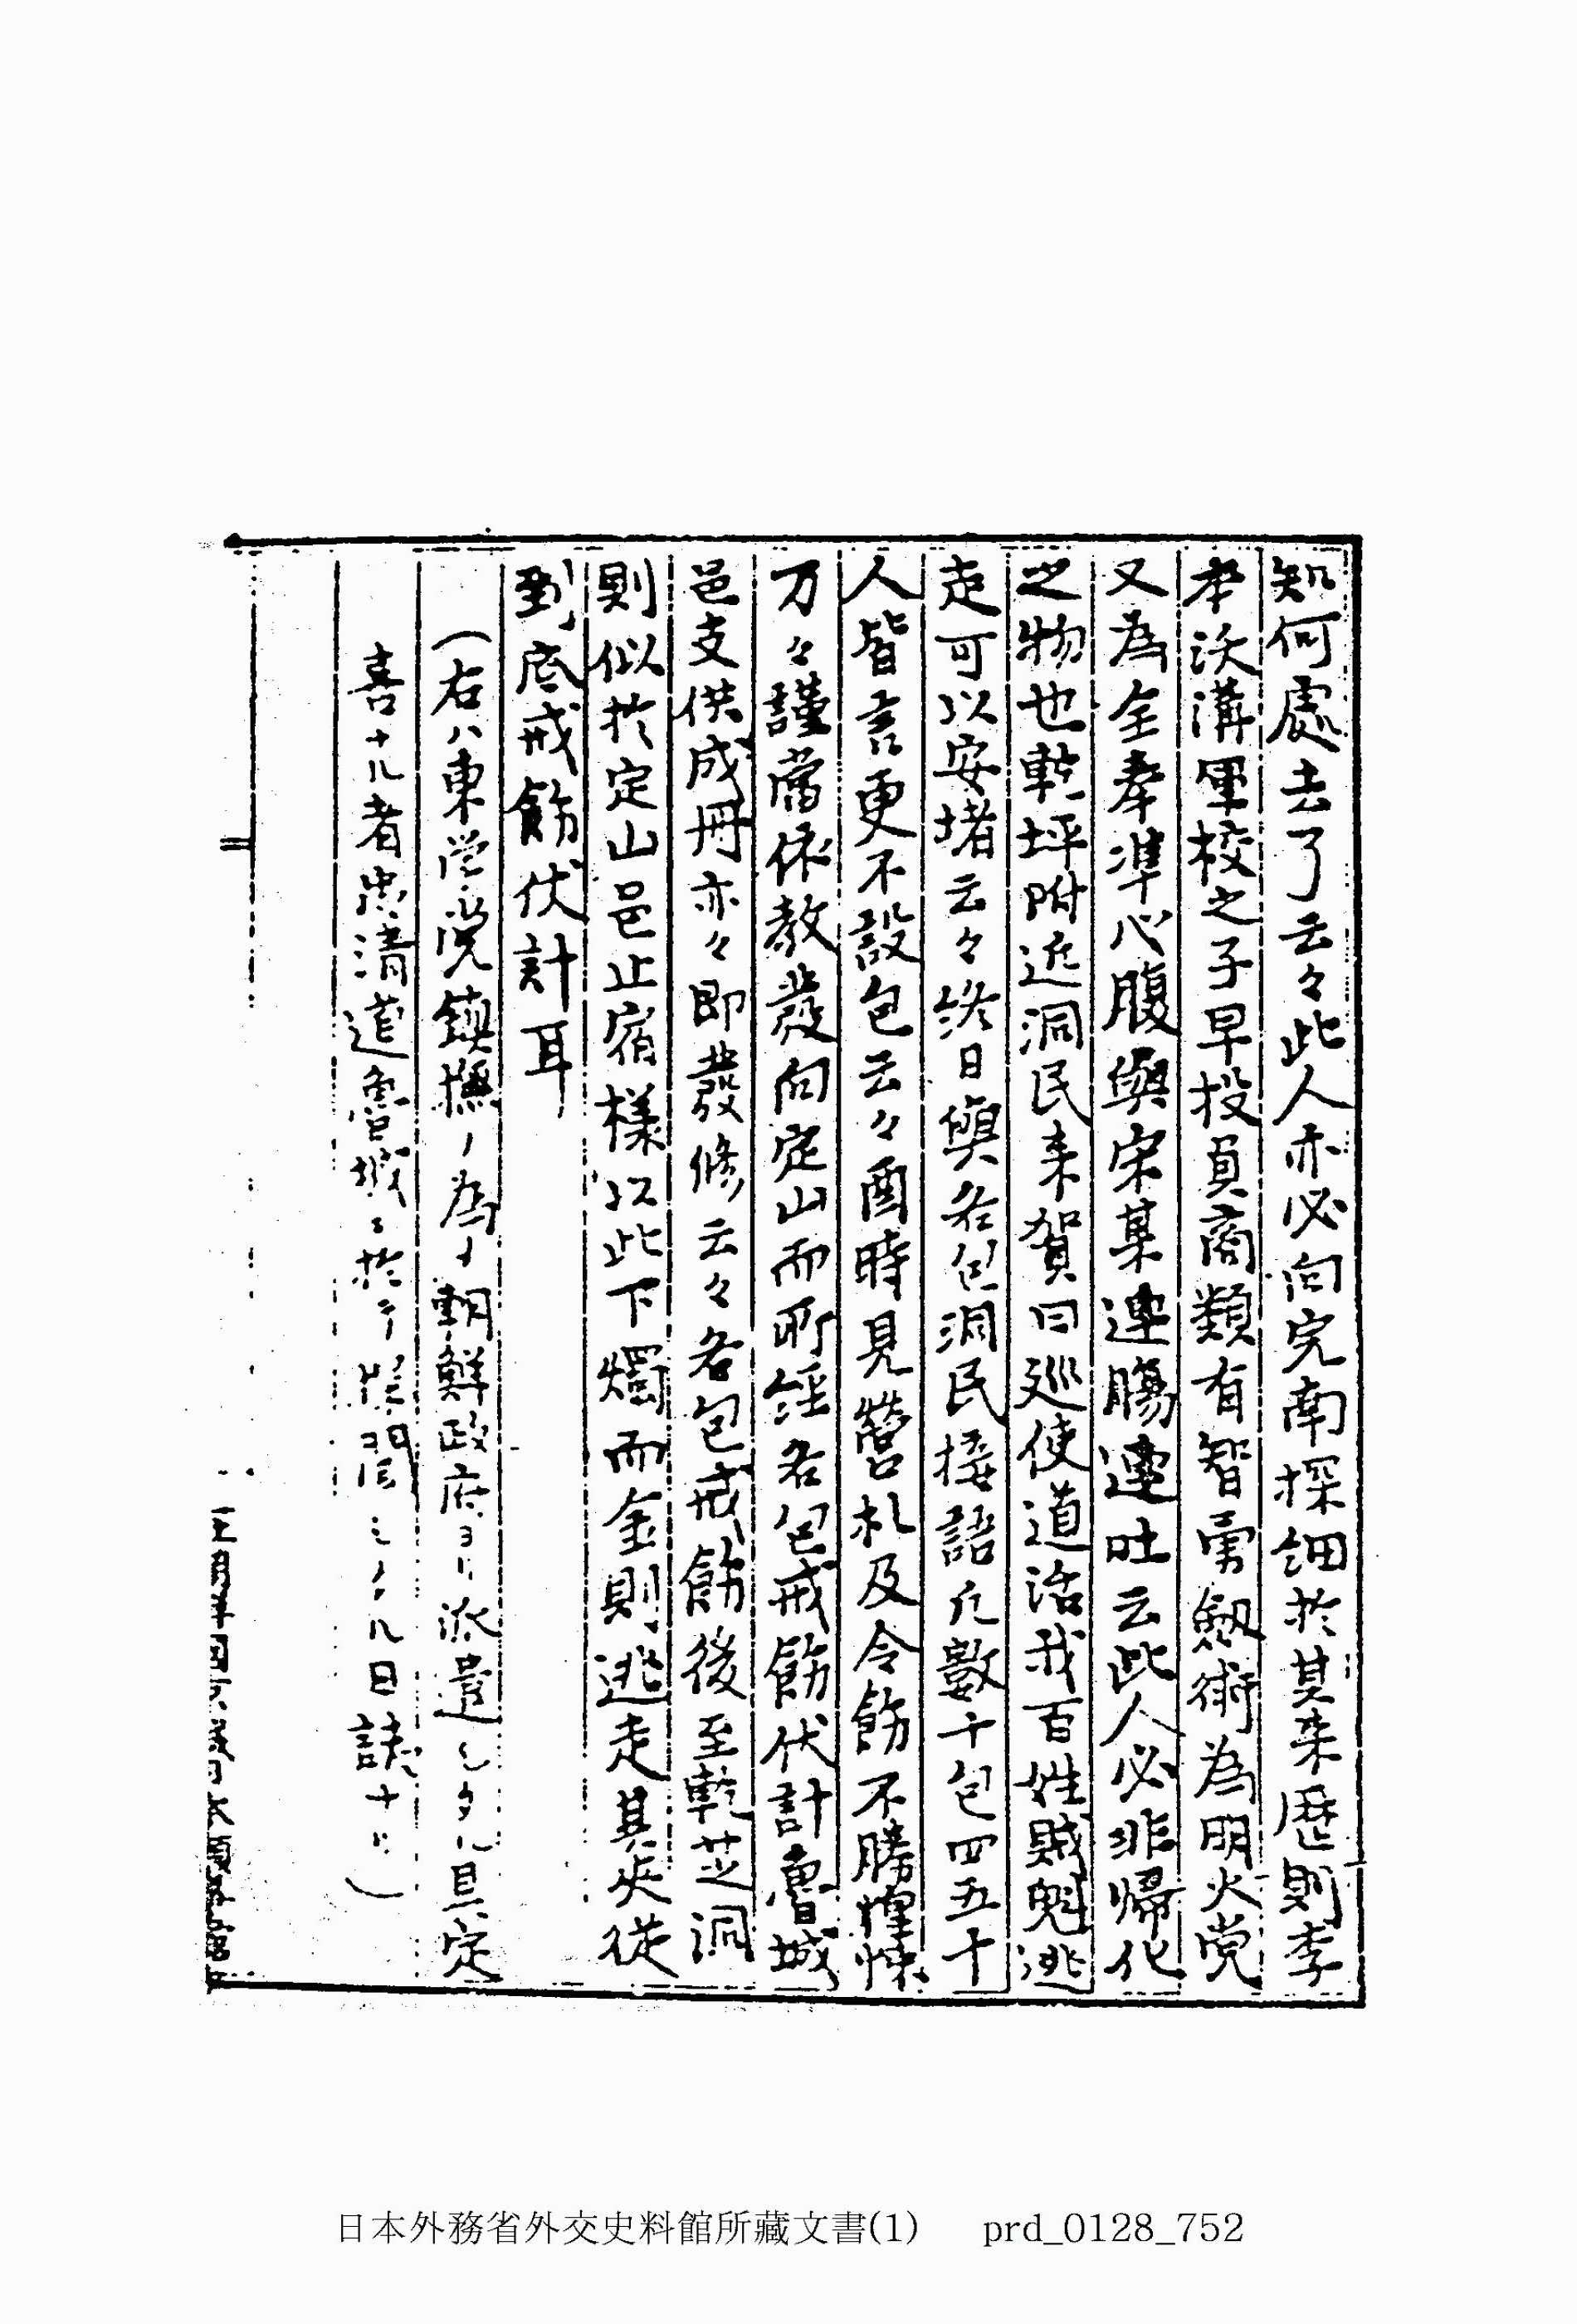 知何處去了云々此人亦必向完南探細於其来歷則李
本沃溝軍校之子早投負商類有智勇劔術為明火党
又為全奉準心腹與宋某連膓連吐云此人必非帰化
之物也乾坪附近洞民来賀曰巡使道活我百姓賊魁逃
走可以安堵云々終日與各包洞民接語凡數十包四五十
人皆言更不設包云々酉時見營札及令飭不勝惶悚
万々謹當依教發向定山而所經各包戒飭伏計魯城
邑支供成冊亦々即發修云々各包戒飭後至乾芝洞
則似於定山邑止宿様以此下燭而金則逃走其夾従
到底戒飭伏計耳
(右ハ東学党鎮撫ノ為メ朝鮮政府ヨリ派遣セラレ且定
喜ナル者忠清道魯城ニ於テ 間 ル日誌ナリ)
日本外務省外交史料館所藏文書(1) prd_0128_752